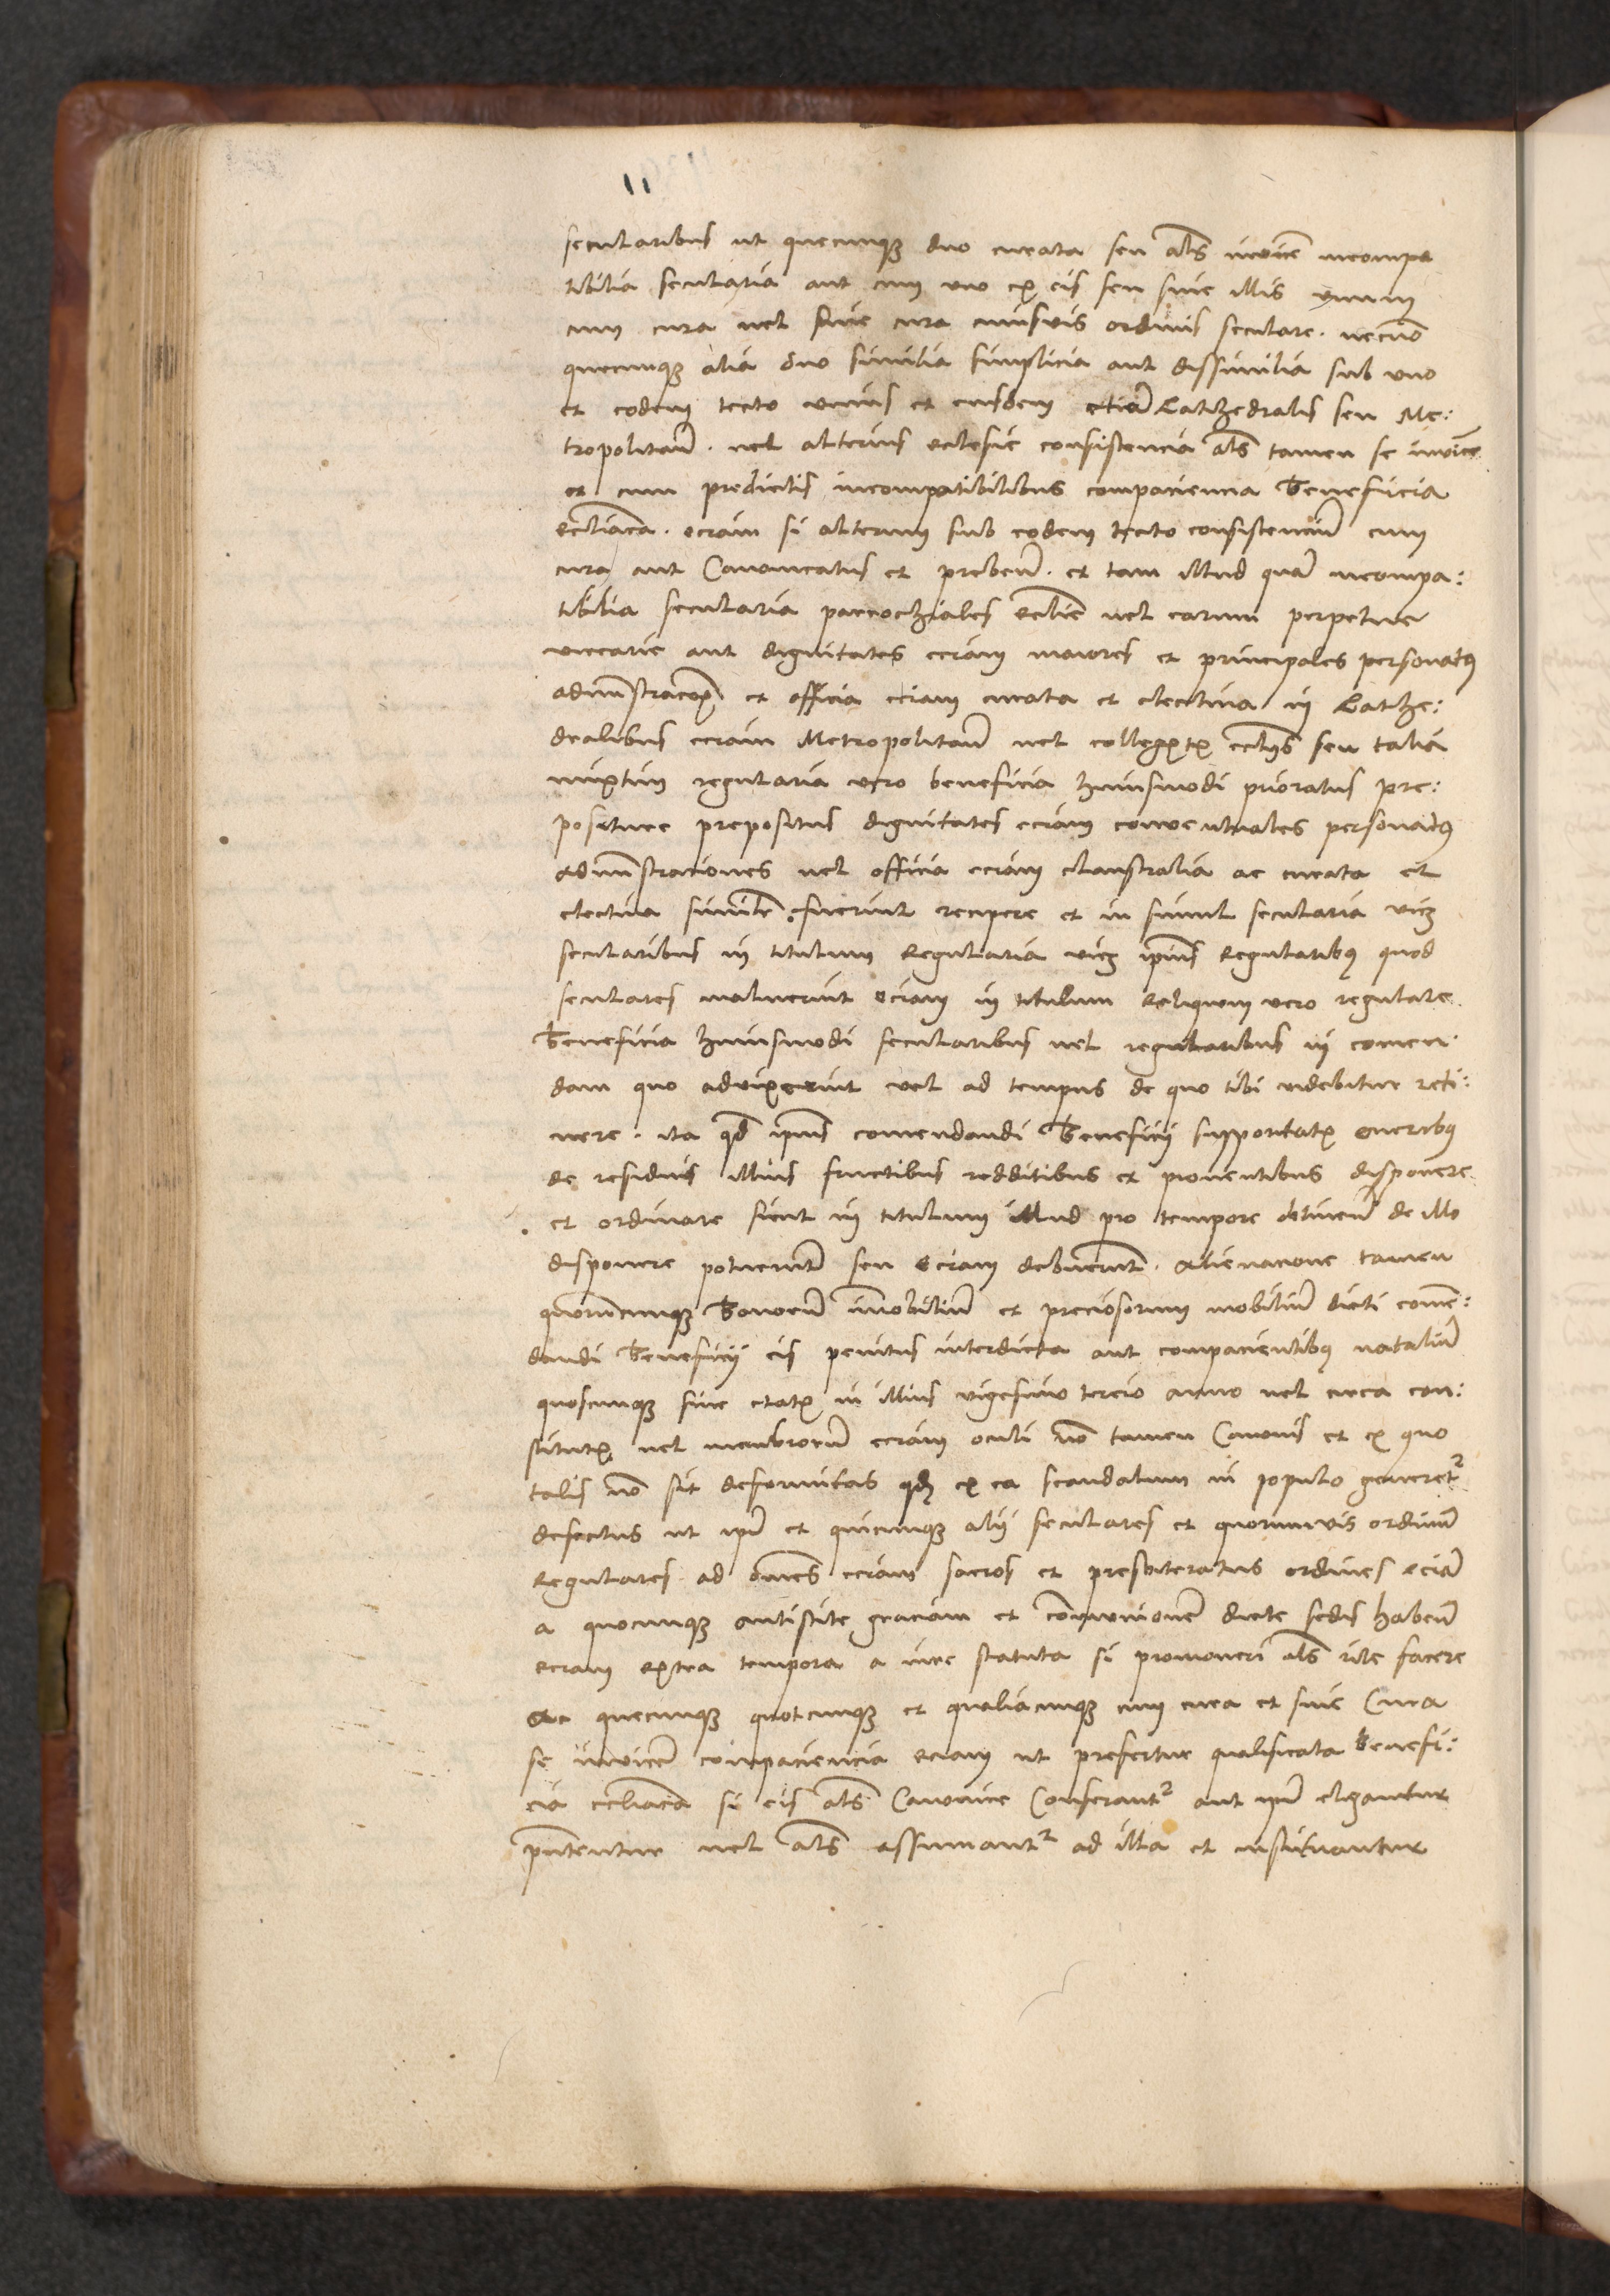 11
secularibus ut quecunqȝ duo curata seu als invicē incompa
tibilia secularia aut cum uno ex eis seu sine illis unum
cum cura vel sine cura cuiusvis ordinis seculare. necnō
quecunqȝ alia duo similia simplicia aut dissimilia sub uno
et eodem tecto unius et eiusdem etiā Cathedralis seu Me:
tropolitañ. vel alterius eclesie consistencia als tamen se invicē
et cum predictis incompatibilibus compaciencia beneficia
eccliaca. eciam si alterum sub eodem tecto consistenciū cum
cura aut Canonicatus et prebenđ. et tam illud quā incompa:
tibilia secularia parrochiales ecclie vel earum perpetue
vicarie aut dignitates eciam maiores et principales personatꝰ
administracōes et officia eciam curata et electiva in Cathe:
dralibus eciam Metropolitañ vel collegiatis eccliis seu talia
mixtim regularia vero beneficia huiusmodi prioratus pre:
positure prepositus dignitates eciam conventuales personatꝰ
administraciones vel officia eciam claustralia ac curata et
electiva similr̄ fuerint recipere et in simul secularia viȝ
secularibus in titulum Regularia viȝ ipsius Regularibꝰ quod
seculares maluerint eciam in titulum Reliquum vero regulare
Beneficia huiusmodi secularibus vel regularibus in comen:
dam quo advixerint vel ad tempus de quo tibi videbitur reti:
nere. ita qđ ipsius comendandi Beneficij supportatis oneribꝰ
de residuis illius fructibus redditibus et proventibus disponere
et ordinare sicut in titulum illud pro tempore detineñ de illo
disponere potuerunt seu eciam debuerunt. Alienacione tamen
quorumcunqȝ bonorū immobiliū et preciosorum mobiliū dicti comē:
dandi Beneficij eis penitus interdicta aut compacientibꝰ nataliū
quoscunqȝ sive etatis in illius vigesimo tercio anno vel circa con:
stitutis vel membrorū eciam oculi nō tamen Canonis et ex quo
talis nō sit deformitas qđ ex ea scandalum in populo generet᷑
defectus ut ipsi et quicunqȝ alij seculares et quorumvis ordinū
Regulares ad omnes eciam sacros et presbiteratus ordines eciā
a quocunqȝ antistite graciam et comunionē dicte sedis habenī
eciam extra tempora a iure statuta si promoveri als rite facere
Ac quecunqȝ quotcunqȝ et qualiacunqȝ cum cura et sine Cura
se invicē compaciencia eciam ut prefertur qualificata Benefi:
cia eccliaca si eis als Canonice Conferant᷑ aut ipsi eligantur
pn̄tentur vel als assumant᷑ ad illa et instituantur